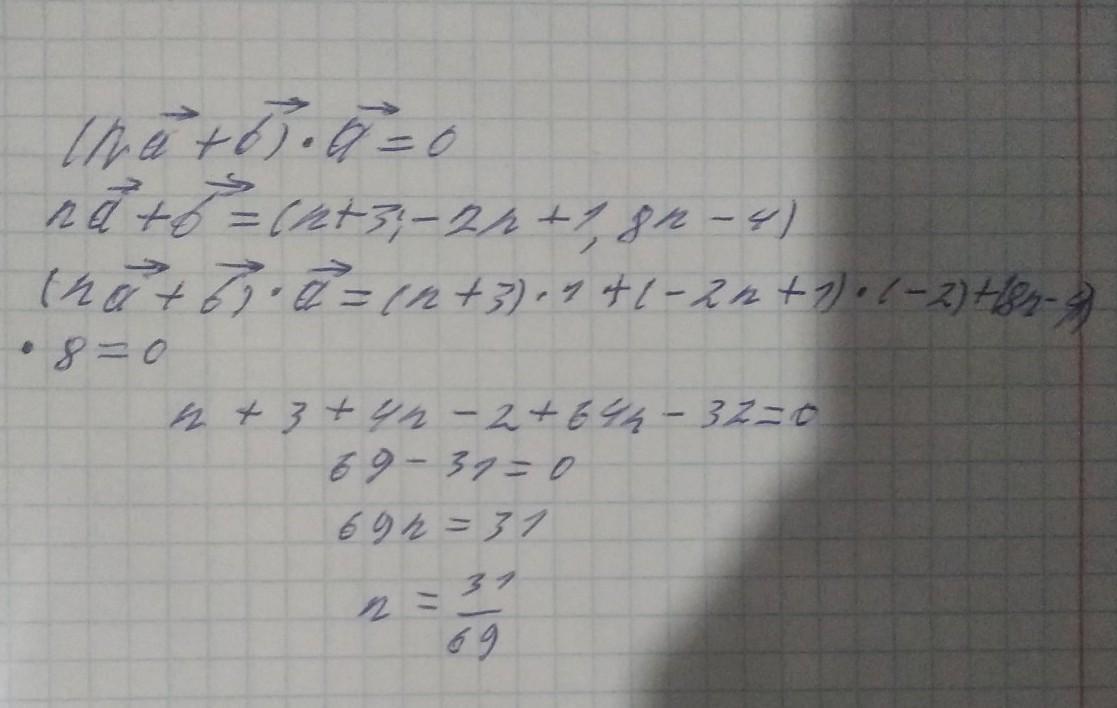 (n a⃗ + b⃗) · a⃗ = 0
n a⃗ + b⃗ = (n+3; -2n+1, 8n-4)
(n a⃗ + b⃗) · a⃗ = (n+3) · 1 + (-2n+1) · (-2) + (8n-4)
· 8 = 0
n + 3 + 4n - 2 + 64n - 32 = 0
69 - 31 = 0
69n = 31
n = 31/69